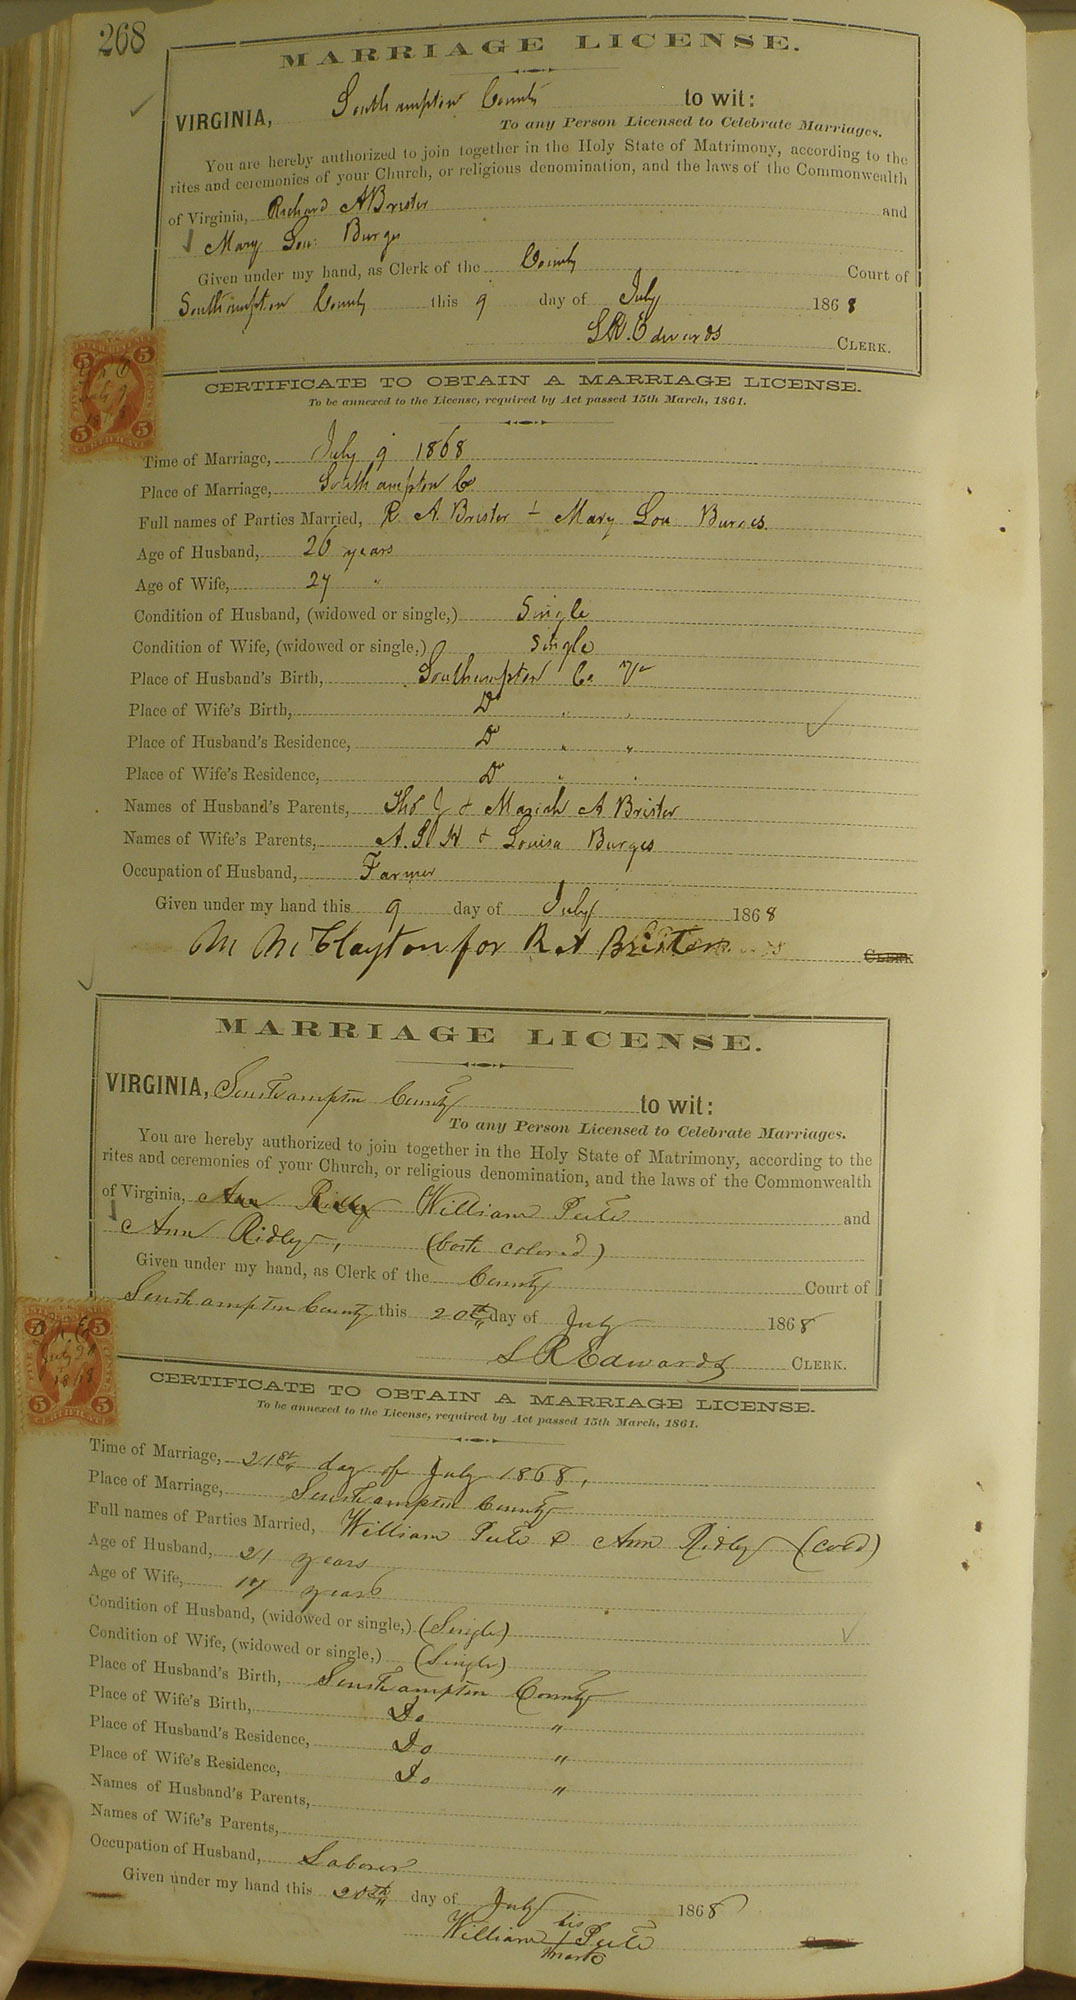 268
MARRIAGE LICENSE.
VIRGINIA, Southampton County to wit:
To any Person Licensed to Celebrate Marriages.
You are hereby authorized to join together in the Holy State of Matrimony, according to the
rites and ceremonies of your Church, or religious denomination, and the laws of the Commonwealth
of Virginia, Richard A Brister and
Mary Lou: Burges
Given under my hand, as Clerk of the County Court of
Southampton County this 9 day of July 1868
L.R. Edwards CLERK.
CERTIFICATE TO OBTAIN A MARRIAGE LICENSE.
To be annexed to the License, required by Act passed 15th March, 1861.
5 5
L R E
July 9
1868
5 5
CERTIFICATE
Time of Marriage, July 9 1868
Place of Marriage, Southampton Co
Full names of Parties Married, R. A. Brister + Mary Lou Burges
Age of Husband, 26 years
Age of Wife, 27 "
Condition of Husband, (widowed or single,) Single
Condition of Wife, (widowed or single,) Single
Place of Husband's Birth, Southampton Co Va
Place of Wife's Birth, Do " "
Place of Husband's Residence, Do " "
Place of Wife's Residence, Do " "
Names of Husband's Parents, Tho J & Mariah A Brister
Names of Wife's Parents, & Louisa Burges
Occupation of Husband, Farmer
Given under my hand this 9 day of July 1868
M McClayton for R A Brister CLERK
MARRIAGE LICENSE.
VIRGINIA, Southampton County to wit:
To any Person Licensed to Celebrate Marriages.
You are hereby authorized to join together in the Holy State of Matrimony, according to the
rites and ceremonies of your Church, or religious denomination, and the laws of the Commonwealth
of Virginia, Ann Ridley William Pete and
Ann Ridley, (both colored)
Given under my hand, as Clerk of the County Court of
Southampton County this 20th day of July 1868
L R Edwards CLERK.
CERTIFICATE TO OBTAIN A MARRIAGE LICENSE.
To be annexed to the License, required by Act passed 15th March, 1861.
5 5
L R E
July 20
1868
5 5
CERTIFICATE
Time of Marriage, 21st day of July 1868,
Place of Marriage, Southampton County
Full names of Parties Married, William Pete & Ann Ridley (cold)
Age of Husband, 21 years
Age of Wife, 17 years
Condition of Husband, (widowed or single,) (Single)
Condition of Wife, (widowed or single,) (Single)
Place of Husband's Birth, Southampton County
Place of Wife's Birth, Do "
Place of Husband's Residence, Do "
Place of Wife's Residence, Do "
Names of Husband's Parents,
Names of Wife's Parents,
Occupation of Husband, Laborer
Given under my hand this 20th day of July 1868
his
William Pete
mark